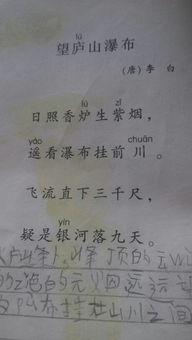 lú
望庐山瀑布
(唐)李 白
lú zǐ
日照香炉生紫烟，
yáo chuān
遥看瀑布挂前川。
飞流直下三千尺，
yín
疑是银河落九天。
顶的云
远远
布挂在山川之间